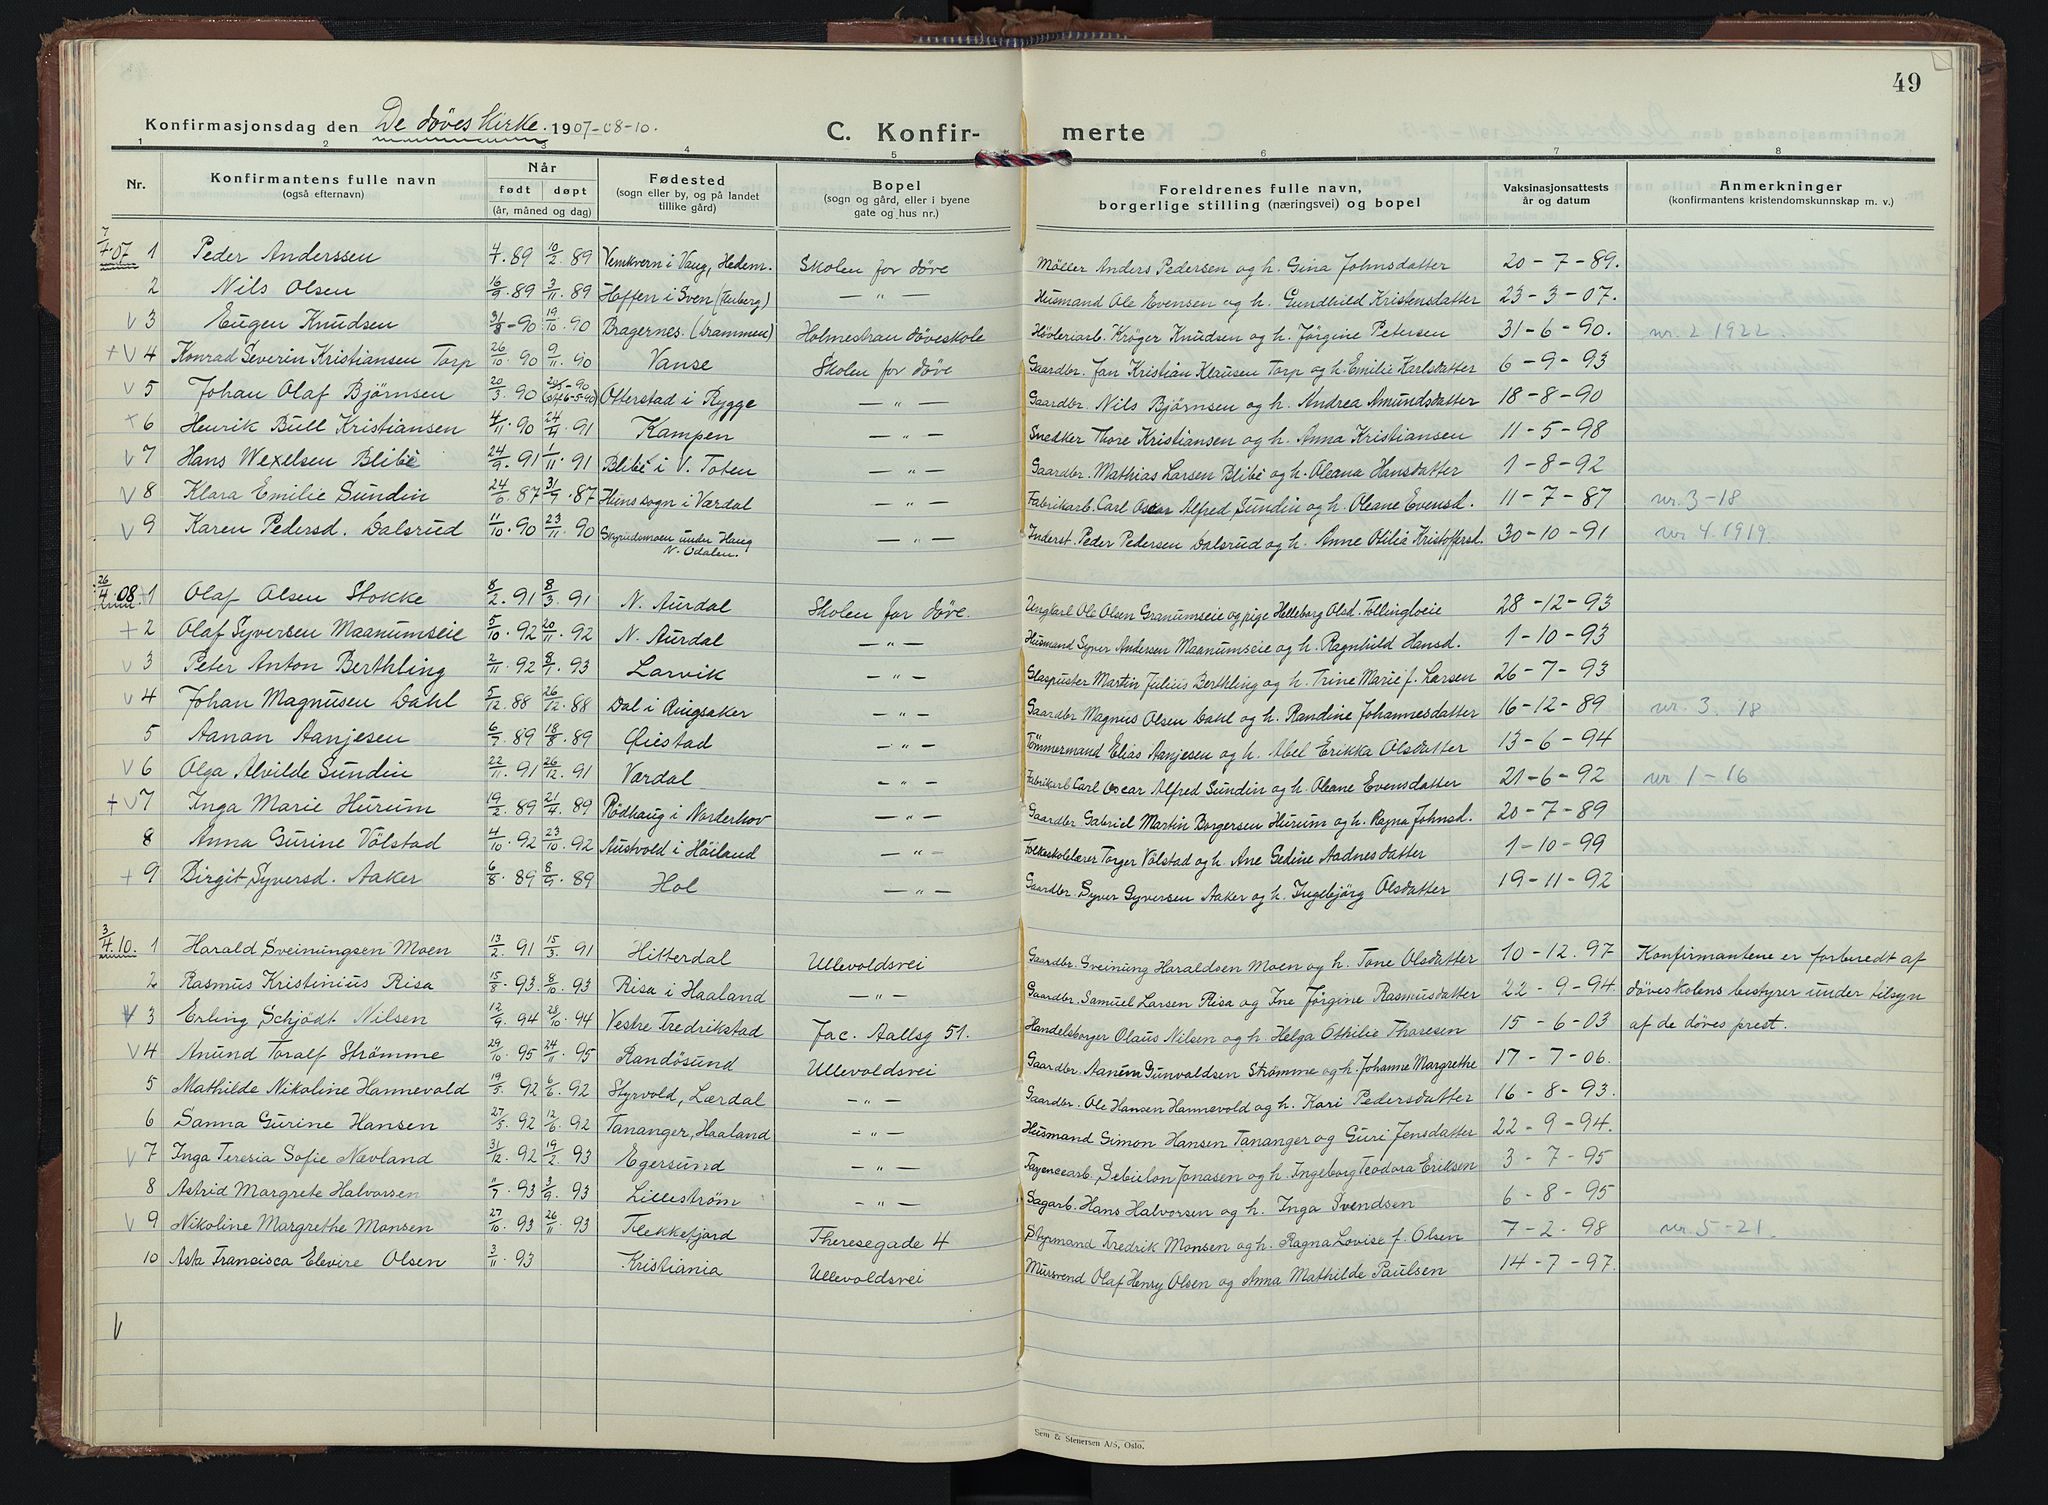 49
Konfirmasjonsdag den De døves kirke. 1907-08-10.
C. Konfir- merte
1 2 3 4 5 6 7 8
Nr. Konfirmantens fulle navn (også efternavn) Når født døpt (år, måned og dag) Fødested (sogn eller by, og på landet tillike gård) Bopel (sogn og gård, eller i byene gate og hus nr.) Foreldrenes fulle navn, borgerlige stilling (næringsvei) og bopel Vaksinasjonsattests år og datum Anmerkninger (konfirmantens kristendomskunnskap m. v.)
7/4.07 1 Peder Anderssen 4/1.89 10/2.89 Vemkvern i Vang, Hedem. Skolen for døve Møller Anders Pedersen og h. Gina Johnsdatter 20-7-89.
2 Nils Olsen 16/9.89 3/11.89 Hoffen i Sven (Tuberg) — " — Husmand Ole Evensen og h. Gundhild Kristensdatter 23-3-07.
V 3 Eugen Knudsen 31/8-90 19/10.90 Bragernes. (Drammen) Holmestran døveskole Høvleriarb. Krøger Knudsen og h. Jörgine Petersen 31-6-90. nr. 2 1922.
+V 4 Konrad Severin Kristiansen Torp 26/10.90 9/11.90 Vanse Skolen for døve Gaardbr. Jan Kristian Klausen Torp og h. Emilie Karlsdatter 6-9-93
V 5 Johan Olaf Bjørnsen 20/3.90 Otterstad i Rygge — " — Gaardbr. Nils Bjørnsen og h. Andrea Amundsdatter 18-8-90
+ 6 Henrik Bull Kristiansen 4/11.90 24/4.91 Kampen — " — Snedker Thore Kristiansen og h. Anna Kristiansen 11-5-98
V 7 Hans Wexelsen Blibê 24/9.91 1/11.91 Blibê i V. Toten — " — Gaardbr. Mathias Larsen Blibê og h. Oleana Hansdatter 1-8-92
V 8 Klara Emilie Sundin 24/6.87 31/9.87 Hunssogn i Værdal — " — Fabrikarb. Carl Oscar Alfred Sundin og h. Oleane Evensd. 11-7-87 nr. 3-18
V 9 Karen Pedersd. Dalsrud 11/10.90 23/11.90 Skyrudsmoen under Haug N. Odalen. — " — Inderst. Peder Pedersen Dalsrud og h. Anne Otilie Kristoffersd. 30-10-91 nr. 4. 1919.
26/4.08 +1 Olaf Olsen Stokke 8/2.91 8/3.91 N. Aurdal Skolen for døve. Ungkarl Ole Olsen Granumseie og pige Helleborg Olsd. Tollingloeie 28-12-93
+ 2 Olaf Syversen Maanumseie 5/10.92 20/11.92 N. Aurdal — " — Husmand Syver Andersen Maanumseie og h. Ragnhild Hansd. 1-10-93
V 3 Peter Anton Berthling 2/11.92 8/1.93 Larvik — " — Glaspuster Martin Julius Berthling og h. Trine Marie f. Larsen 26-7-93
V 4 Johan Magnusen Dahl 5/12.88 26/12.88 Dal i Ringsaker — " — Gaardbr Magnus Olsen Dahl og h. Randine Johannesdatter 16-12-89 nr. 3. 18
5 Aanon Aanjesen 6/7.89 18/8.89 Øiestad — " — Tømmermand Elias Aanjesen og h. Abel Erikka Olsdatter 13-6-94
V 6 Olga Alvilde Sundin 22/11.91 26/12.91 Vardal — " — Fabrikarb Carl Oscar Alfred Sundin og h. Oleane Evensdatter 21-6-92 nr 1-16
+V 7 Inga Marie Hurum 19/2.89 21/4.89 Rødhaug i Norderhov — " — Gaardbr Gabriel Martin Borgersen Hurum og h. Ragna Johnsd. 20-7-89
8 Anna Gurine Völstad 4/10.92 23/10.92 Austvold i Höiland — " — Folkeskolelærer Torger Völstad og h. Ane Gedine Aadnesdatter 1-10-99
+ 9 Birgit Syversd. Aaker 6/8.89 8/9.89 Hol — " — Gaardbr. Syver Syversen Aaker og h. Ingebjörg Olsdatter 19-11-92
3/4.10. 1 Harald Sveinungsen Moen 13/2.91 15/3.91 Hitterdal Ullevoldsvei Gaardbr. Sveinung Haraldsen Moen og h. Tone Olsdatter 10-12.97 Konfirmantene er forberedt af
2 Rasmus Kristinius Risa 15/8.93. 8/10.93 Risa i Haaland — " — Gaardbr. Samuel Larsen Risa og Ine Jörgine Rasmusdatter 22-9-94. døveskolens bestyrer under tilsyn
V 3 Erling Schjödt Nilsen 12/9.94 28/10.94 Vestre Fredrikstad Jac. Aallsg 51. Handelsborger Olaus Nilsen og h. Helga Othilie Thoresen 15-6-03 af de døves prest.
V 4 Anund Toralf Strømme 29/10.95 24/11.95 Randösund Ullevoldsvei Gaardbr. Aanem Gunvaldsen Strømme og h. Johanne Margrethe 17-7-06.
5 Mathilde Nikoline Hannevold 19/5.92 6/6.92 Styrvold, Lærdal — " — Gaardbr. Ole Hansen Hannevold og h. Kari Pedersdatter 16-8-93.
6 Sanna Gurine Hansen 27/5.92 12/6.92 Tananger, Haaland — " — Husmand Simon Hansen Tananger og Guri Jensdatter 22-9-94.
V 7 Inga Teresia Sofie Nævland 31/12.92 19/2.93 Egersund — " — Fayencearb. Sebulon Jonasen og h. Ingeborg Teodora Eriksen 3-7-95
8 Astrid Margrete Halvorsen 11/7.93 3/9.93 Lillestrøm — " — Sagarb. Hans Halvorsen og h. Inga Svendsen 6-8-95
V 9 Nikoline Margrethe Monsen 27/10.93 26/11.93 Flekkefjord Theresegade 4 Styrmand Fredrik Monsen og h. Ragna Lovise f. Olsen 7-2.98 nr. 5-21.
10 Asta Francisca Elevire Olsen 3/11.93 Kristiania Ullevoldsvei Mursvend Olaf Henry Olsen og Anna Mathilde Paulsen 14-7-97.
V
Sem & Stenersen A/S, Oslo.